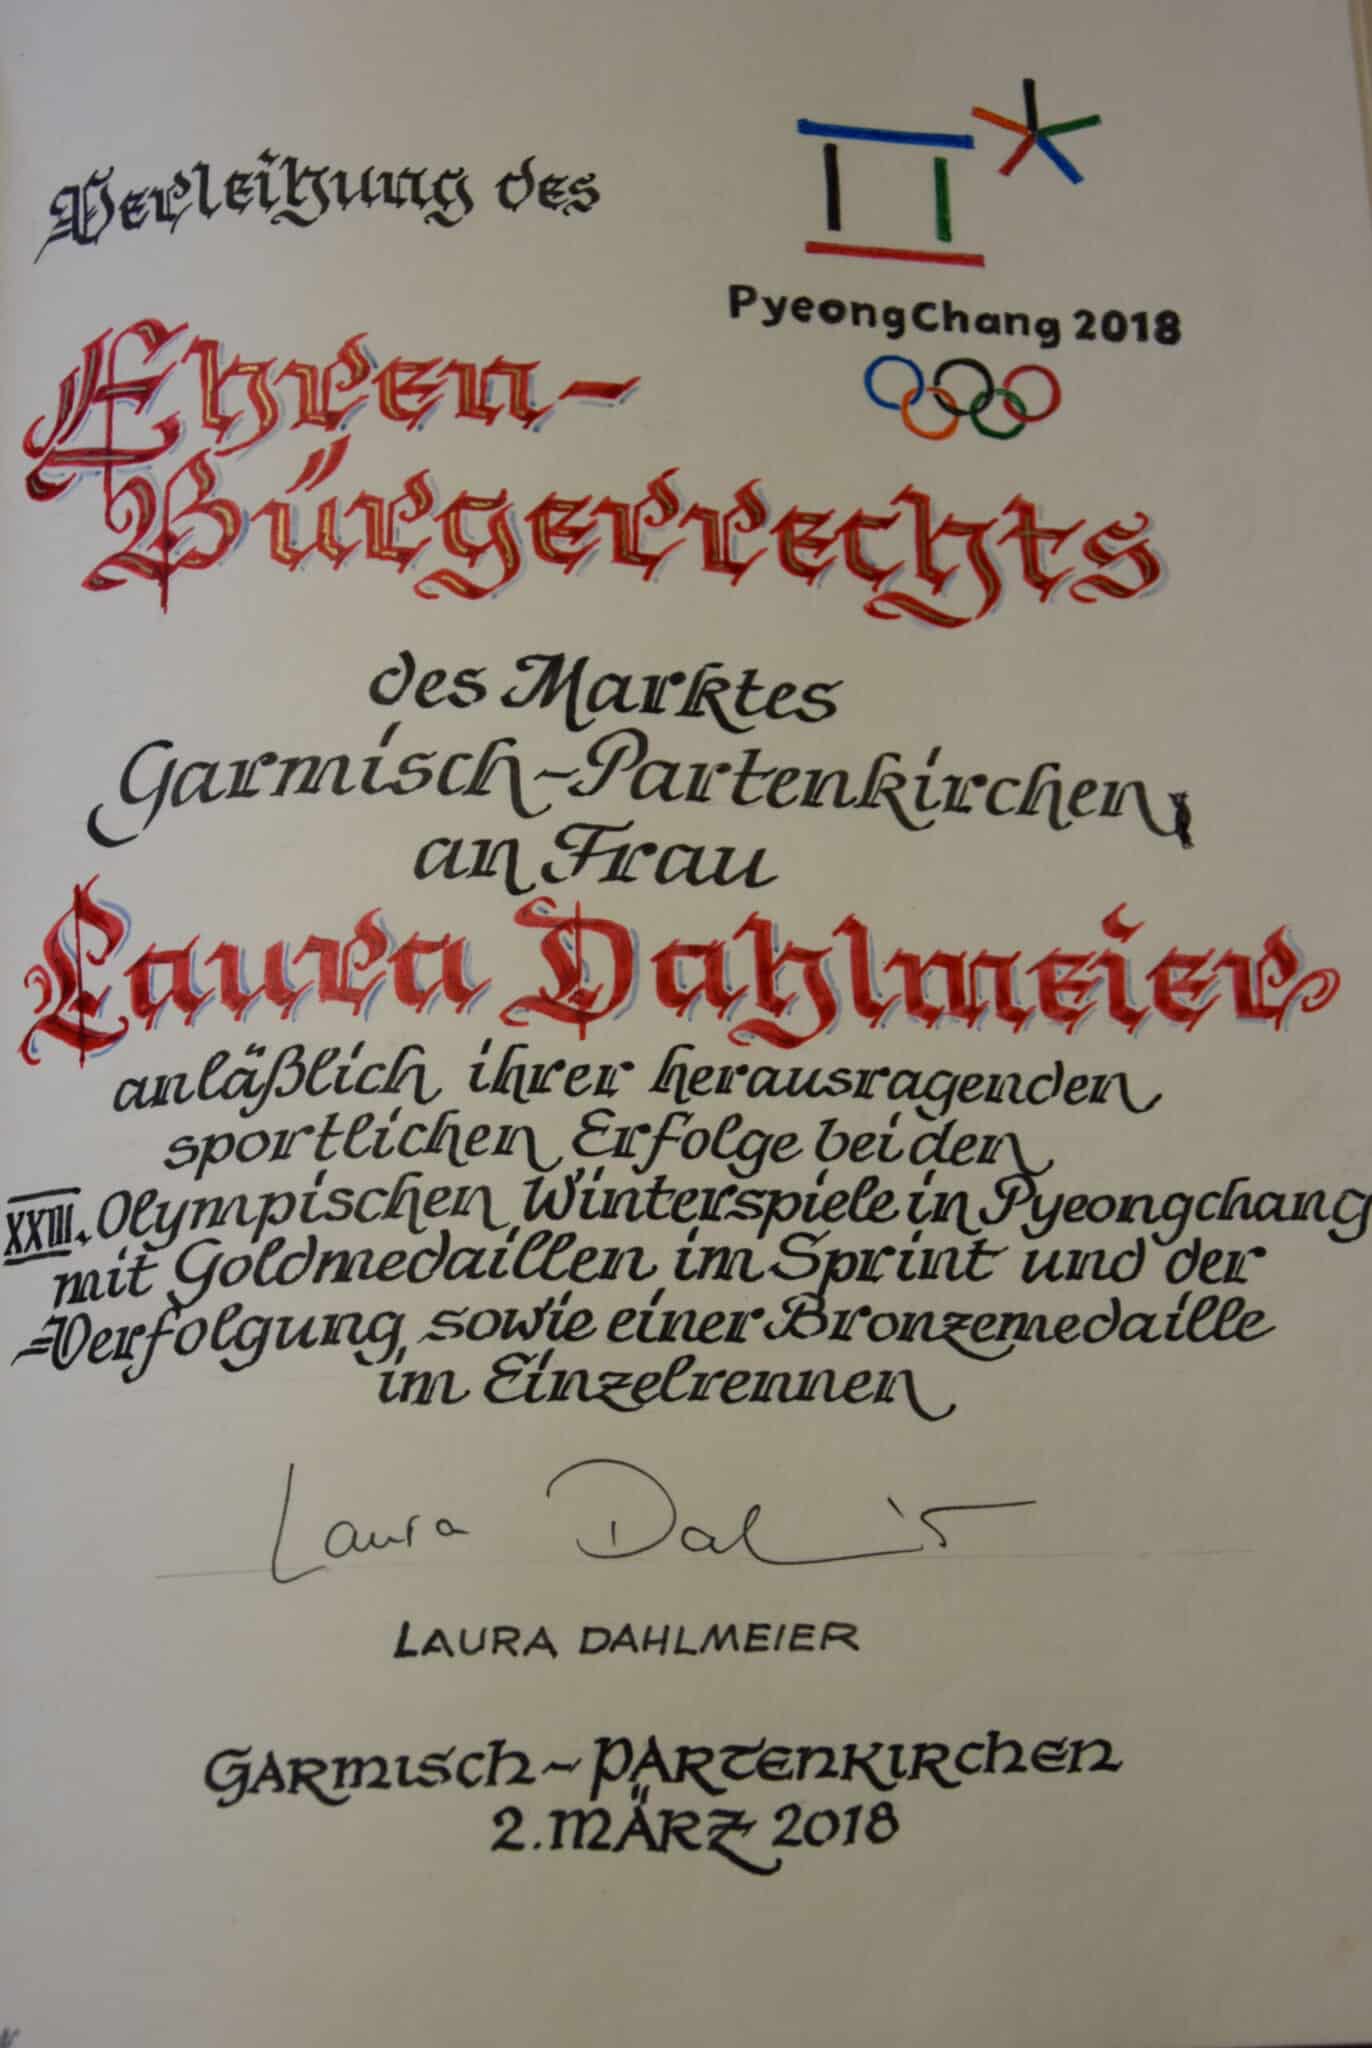 Verleihung des
PyeongChang 2018
Ehren-
Bürgerrechts
des Marktes
Garmisch-Partenkirchen
an Frau
Laura Dahlmeier
anläßlich ihrer herausragenden
sportlichen Erfolge bei den
XXIII. Olympischen Winterspiele in Pyeongchang
mit Goldmedaillen im Sprint und der
Verfolgung, sowie einer Bronzemedaille
im Einzelrennen
Laura Dahlmeier
LAURA DAHLMEIER
GARMISCH-PARTENKIRCHEN
2. MÄRZ 2018